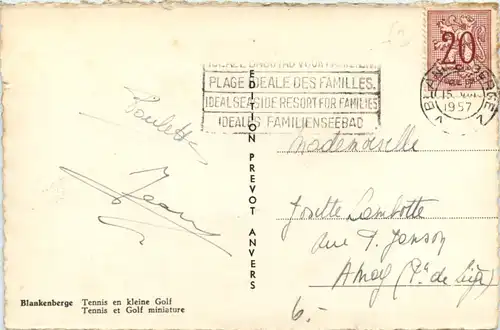 PLAGE IDEALE DES FAMILLES.
IDEAL SEASIDE RESORT FOR FAMILIES
IDEALES FAMILIENSEEBAD
20
BLANKENBERGE
1957
EDITION PREVOT ANVERS
Paulette
Jean
Mademoiselle
Josette Lambotte
rue P. Janson
Amay (Pce de Liège)
6.-
Blankenberge Tennis en kleine Golf
Tennis et Golf miniature